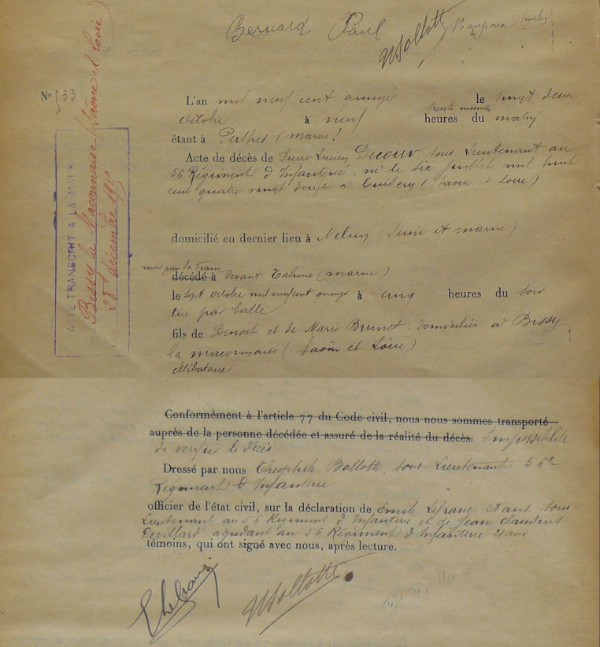 Bernard Paul
No 533
ACTE TRANSCRIT A LA M
Bissy la Maconnaise (Saone et Loire)
28 décembre
L'an mil neuf cent quinze le vingt deux
octobre à neuf heures trente minutes du matin
étant à Perthes (marne)
Acte de décès de Pierre Lucien Decour sous Lieutenant au
56 Régiment d'Infanterie, né le six juillet mil huit
cent quatre vingt douze à (Saone et Loire)
domicilié en dernier lieu à Melun (Seine et marne)
mort pour la France
décédé à Devant Tahure (marne)
le sept octobre mil neuf cent quinze à cinq heures du soir
tué par balle
fils de Benoit et de Marie Brunot domiciliés à Bissy
la maconnaise (Saone et Loire)
célibataire
Conformément à l'article 77 du Code civil, nous nous sommes transporté
auprès de la personne décédée et assuré de la réalité du décès. Impossibilité
de verifier le décès
Dressé par nous Théophile sous-Lieutenant 56e
Régiment d'Infanterie
officier de l'état civil, sur la déclaration de Emile Lefranc ans sous-
Lieutenant au 56 Régiment d'Infanterie et de Jean Claudius
adjudant au 56 Régiment d'Infanterie ans
témoins, qui ont signé avec nous, après lecture.